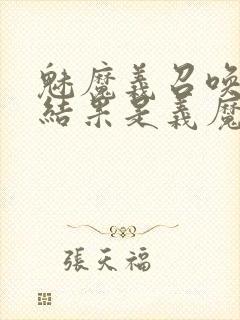 魅魔義召喚
結果是義魔
張天福